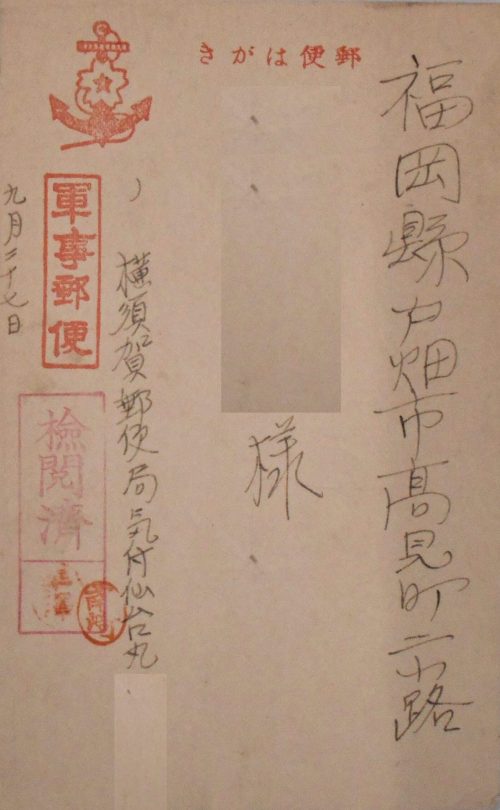 郵便はがき
福岡縣戸畑市髙見町六小路
様
横須賀郵便局気付仙台丸
軍事郵便
九月二十七日
檢閲濟